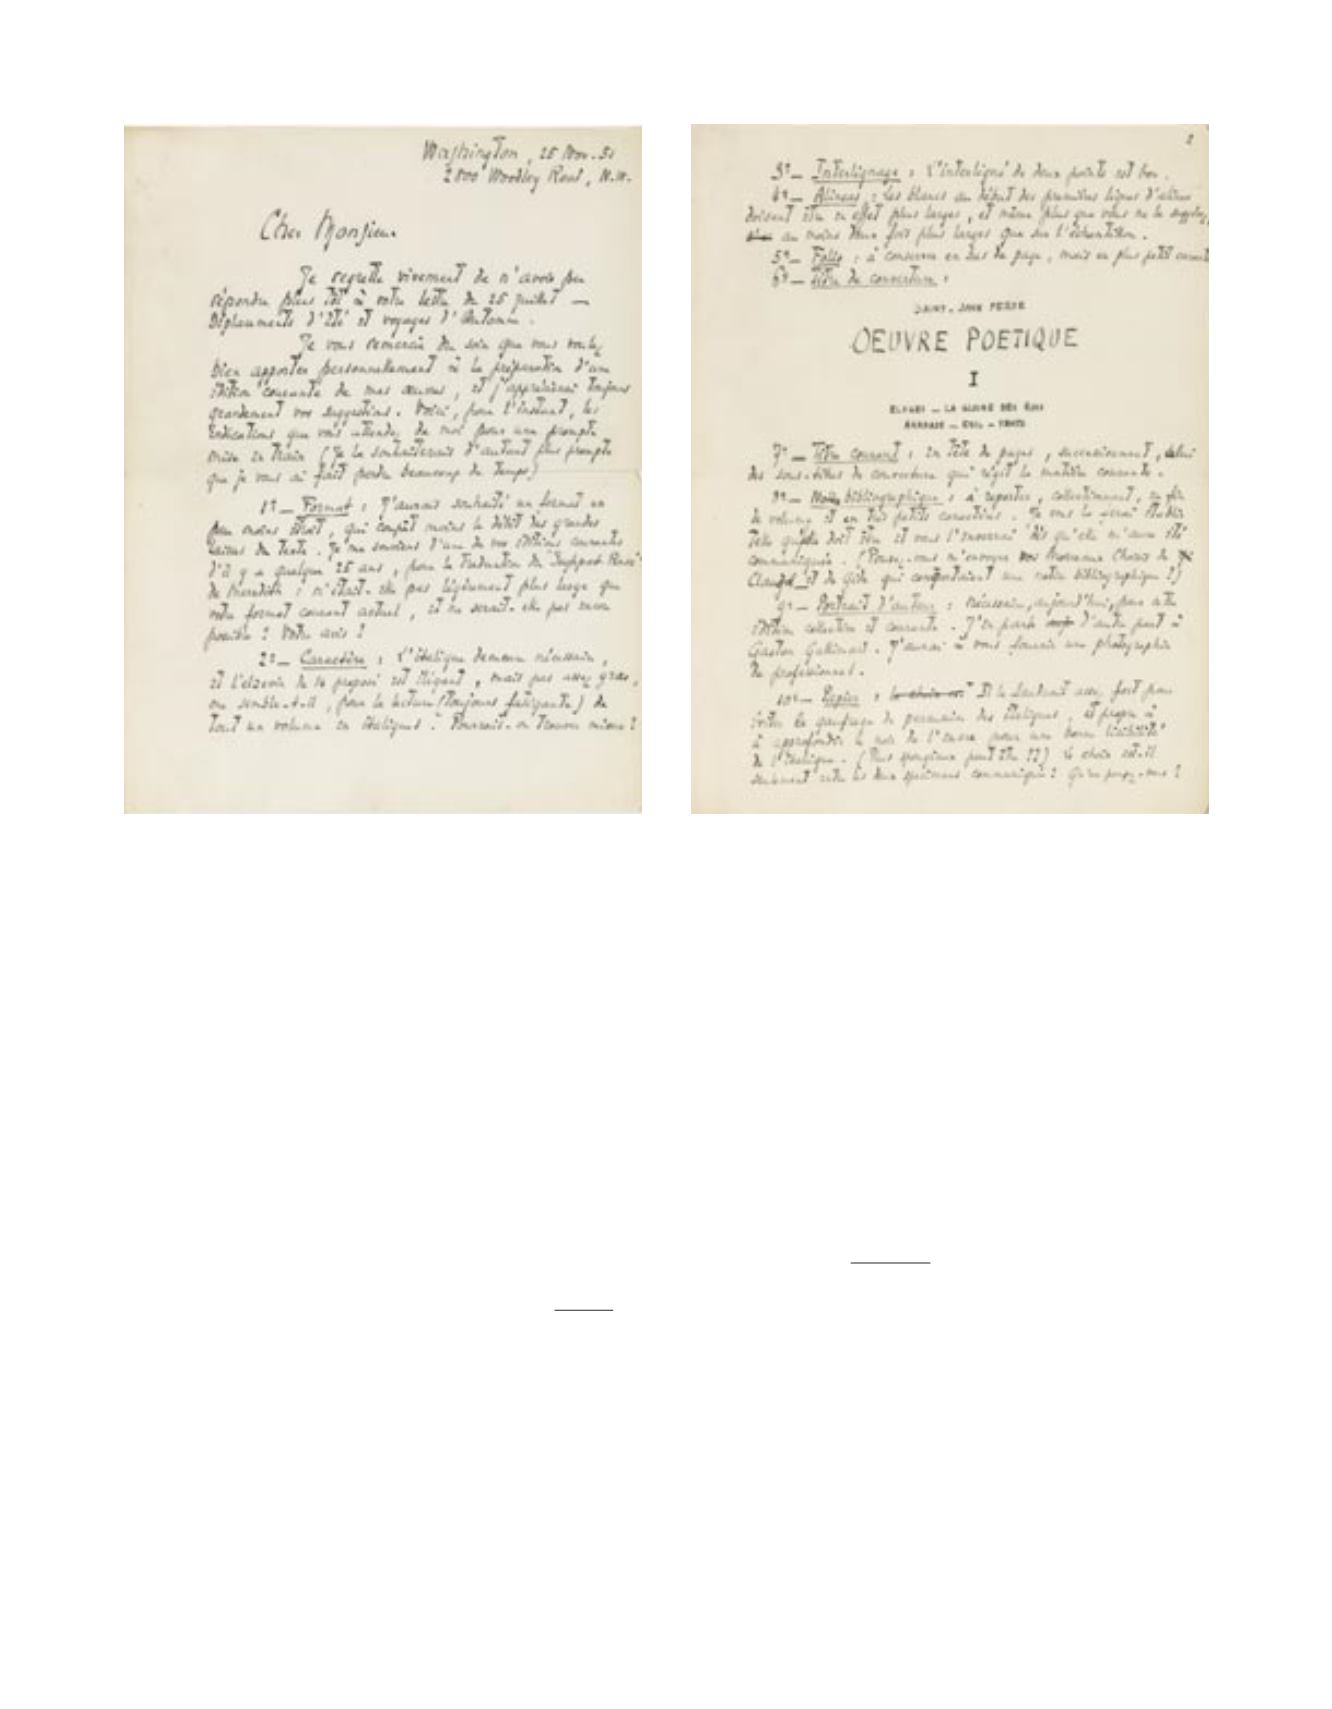 Washington, 25 Nov. 51
2800 Woodley Road, N.W.
Cher Monsieur
Je regrette vivement de n'avoir pu
répondre plus tôt à votre lettre du 25 juillet —
Déplacements d'Eté et voyages d'Automne.
Je vous remercie du soin que vous voulez
bien apporter personnellement à la préparation d'une
édition courante de mes œuvres, et j'apprécierai toujours
grandement vos suggestions. Voici, pour l'instant, les
indications que vous attendez de moi pour une prompte
mise en train (Je la souhaiterais d'autant plus prompte
que je vous ai fait perdre beaucoup de temps)
1º — Format : J'aurais souhaité un format un
peu moins étroit, qui coupât moins le débit des grandes
laisses du texte. Je me souviens d'une de vos éditions courantes
d'il y a quelque 25 ans, pour la traduction du
de Meredith : n'était-elle pas légèrement plus large que
votre format courant actuel, et ne serait-elle pas encore
possible ? Votre avis ?
2º — Caractère : L'italique demeure nécessaire,
et l'elzévir de 14 proposé est élégant, mais pas assez gras,
me semble-t-il, pour la lecture (toujours fatigante) de
tout un volume en italiques. Pourrait-on trouver mieux ?
2
3º — Interlignage : L'interligne de deux points est bon.
4º — Alinéas : Les blancs au début des premières lignes d'alinéa
doivent être en effet plus larges, et même plus que vous ne le suggérez,
au moins deux fois plus larges que sur l'échantillon.
5º — Folio : à conserver en bas de page, mais en plus petit caractère
6º — Titre de couverture :
SAINT-JOHN PERSE
OEUVRE POETIQUE
I
ELOGES — LA GLOIRE DES ROIS
ANABASE — EXIL — VENTS
7º — Titre courant : en tête de pages, successivement, celui
des sous-titres de couverture qui régit la matière courante.
8º — Note bibliographique : à reporter, collectivement, en fin
de volume et en très petits caractères. Je vous la ferai établir
telle qu'elle doit être et vous l'enverrai dès qu'elle m'aura été
communiquée. (Pouvez-vous m'envoyer vos Morceaux Choisis de
Claudel et de Gide qui comportaient une notice bibliographique ?)
9º — Portrait d'auteur : nécessaire, aujourd'hui, pour cette
édition collective et courante. J'en parle d'autre part à
Gaston Gallimard. J'aurai à vous fournir une photographie
de professionnel.
10º — Papier : le choix est Il le faudrait assez fort pour
éviter le gaufrage de pression des italiques, et propre à
à approfondir le noir de l'encre pour une bonne lisibilité
de l'italique. (Plus spongieux peut-être ??) Le choix est-il
seulement entre les deux spécimens communiqués ? Qu'en pensez-vous ?